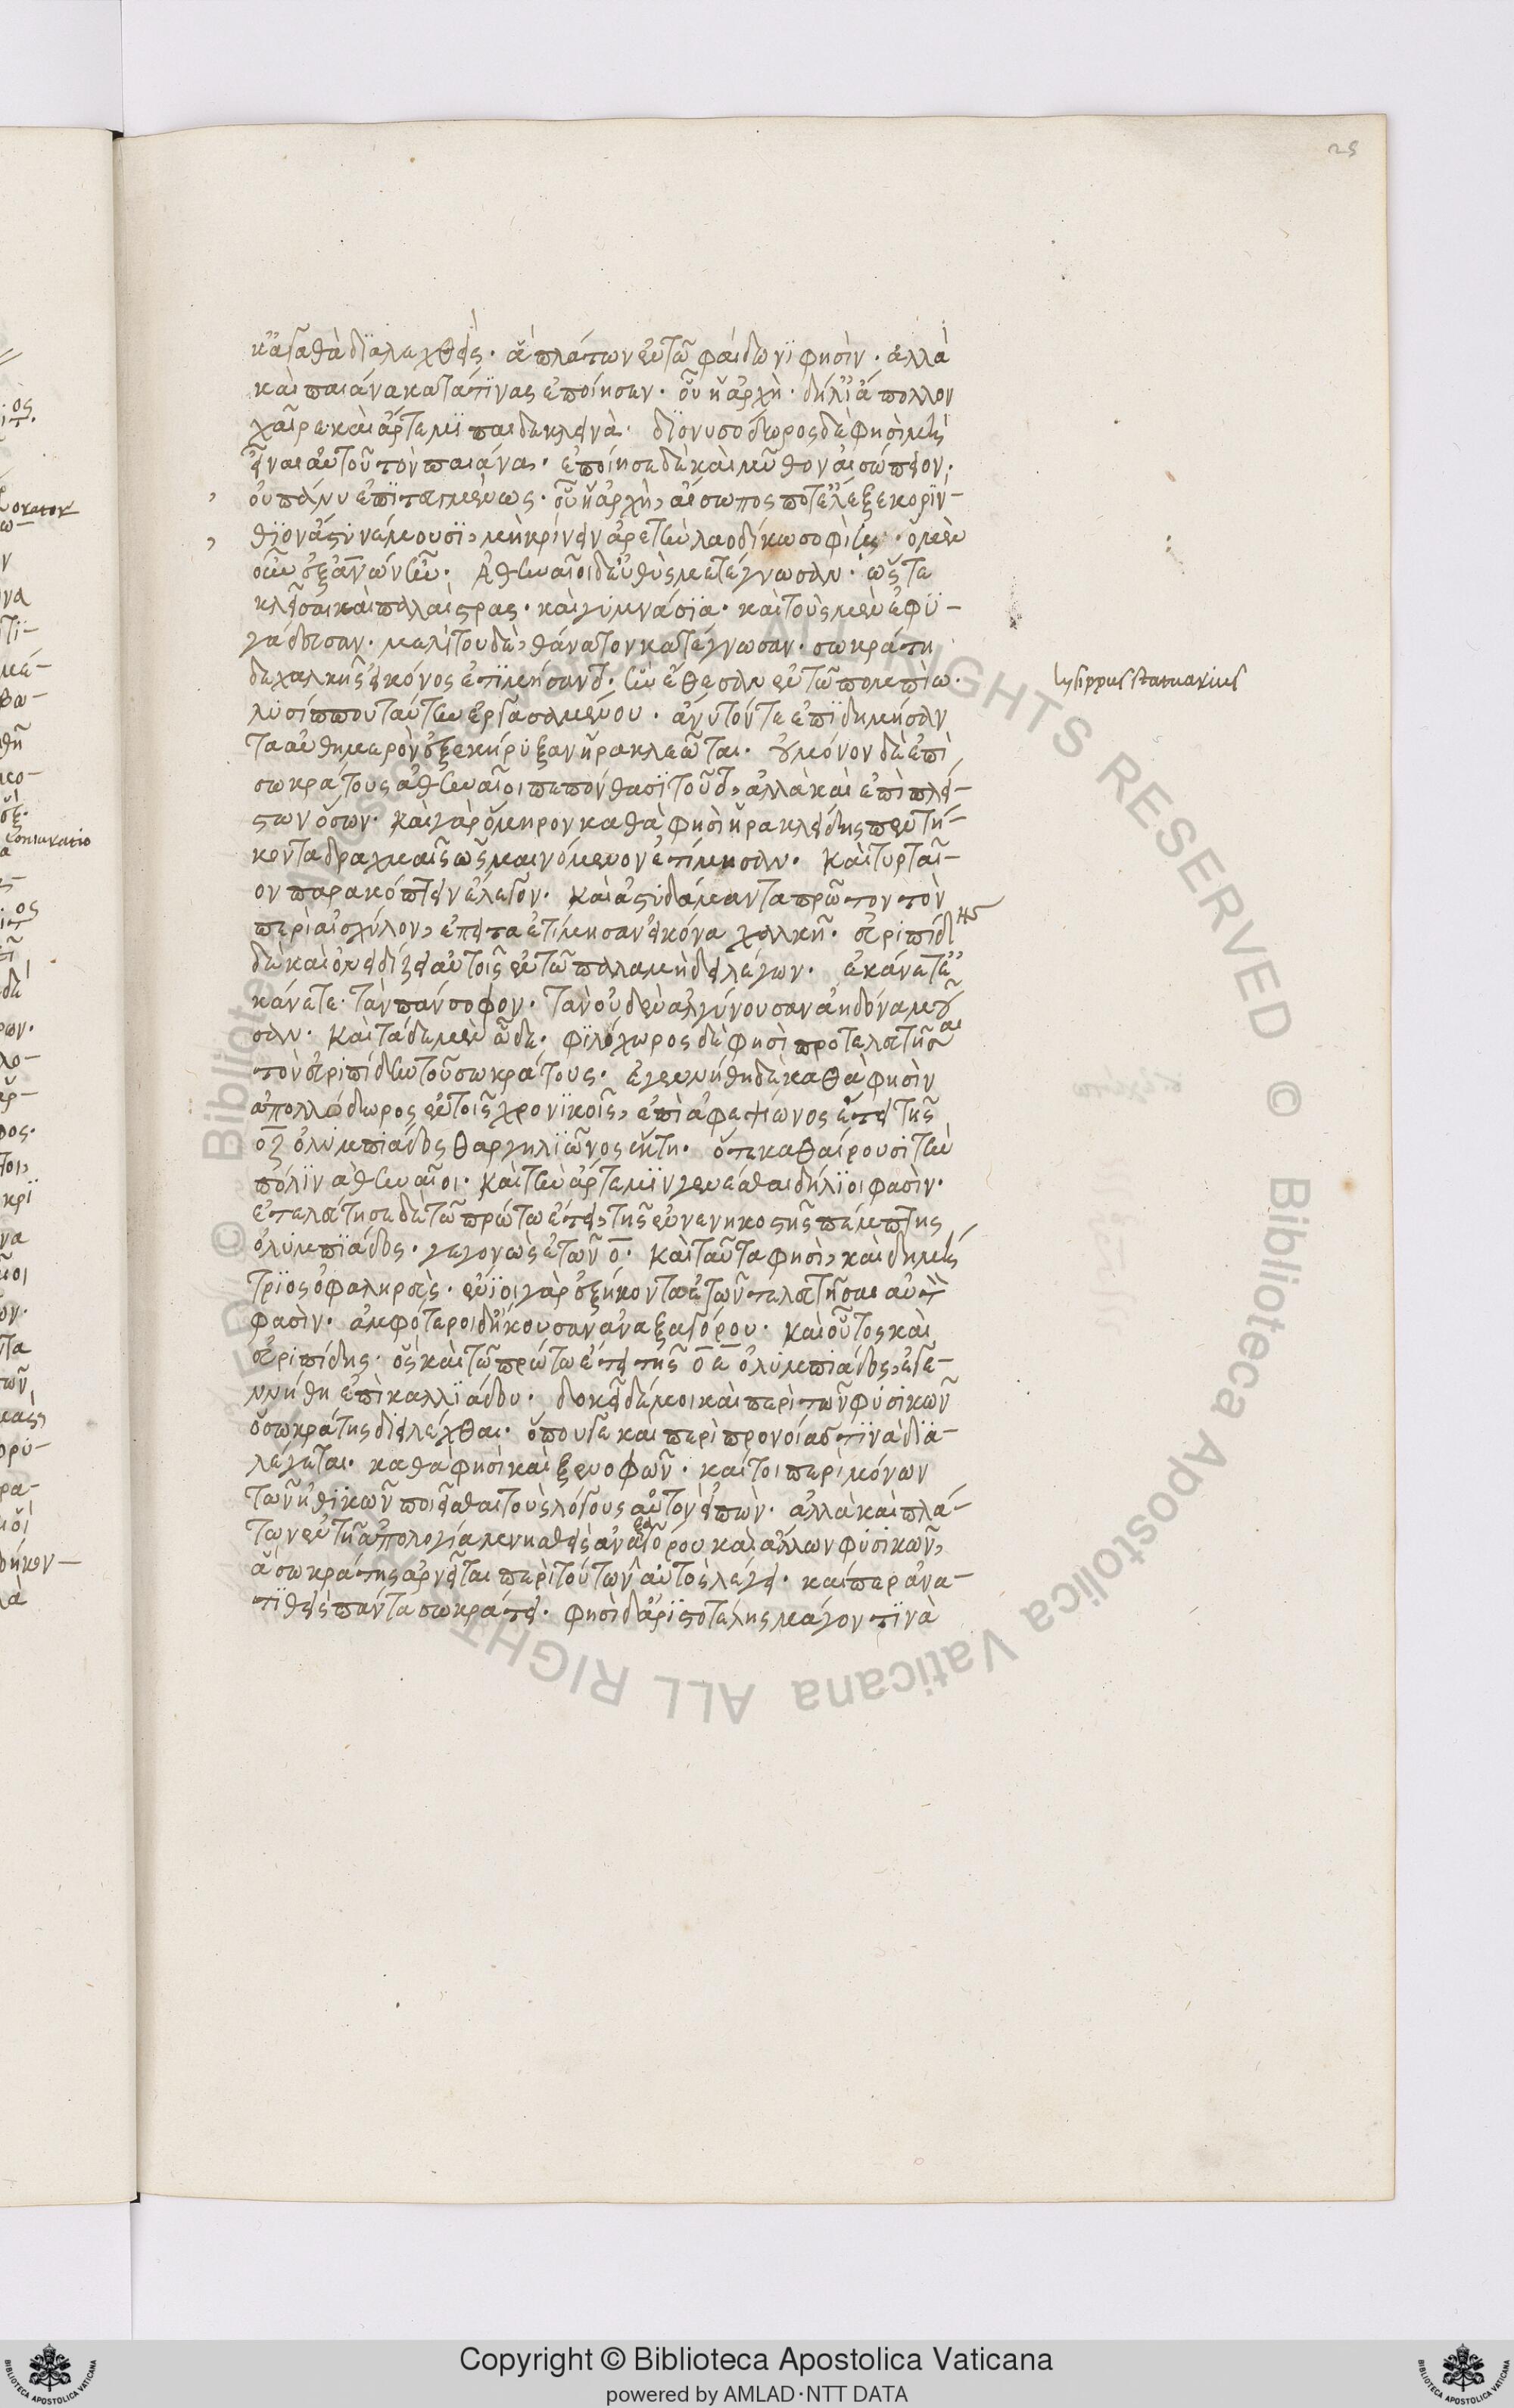 25
κἀγαθὰ διαλεχθεὶς. ἃ πλάτων ἐν τῶ φαίδωνϊ φησὶν. ἀλλὰ
καὶ παιάνα κατά τϊνας ἐποίησεν. οὗ ἡ ἀρχὴ. δήλϊ' ἄπολλον
χαῖρε καὶ ἄρτεμϊ παῖδε κλεινὼ. δϊονυσόδωρος δὲ φησὶ μὴ
εἶναι αὐτοῦ τὸν παιάνα. ἐποίησε δὲ καὶ μῦθον αἰσώπειον.
οὐ πάνυ ἐπϊτετευγμένως. οὗ ἡ ἀρχὴ, αἴσωπος ποτ' ἔλεξε κορϊν-
θϊον ἄστυ νέμουσϊ, μὴ κρίνειν ἀρετὴν λαοδίκω σοφίη. ὁ μὲν
οὖν ἐξ ἀνῶν ἦν. Ἀθηναῖοι δ' εὐθὺς μετέγνωσαν. ὥστε
κλεῖσαι καὶ παλαίστρας. καὶ γυμνάσϊα. καὶ τοὺς μὲν ἐφϋ-
γάδευσαν. μελίτου δὲ, θάνατον κατέγνωσαν. σωκράτη
δὲ χαλκῆς εἰκόνος ἐτϊμήσαντο. ἣν ἔθεσαν ἐν τῶ πομπίω.
lysippus statuarius
λυσίππου ταύτην ἐργασαμένου. ἄνυτόν τε ἐπϊδημήσαν
τα αὐθημερὸν ἐξεκήρυξαν ἡρακλεῶται. οὐ μόνον δὲ ἐπὶ
σωκράτους ἀθηναῖοι πεπόνθασϊ τοῦτο, ἀλλὰ καὶ ἐπὶ πλεί-
στων ὅσων. καὶ γὰρ ὅμηρον καθὰ φησὶ ἡρακλείδης πεντή-
κοντα δραχμαῖς ὡς μαινόμενον ἐτίμησαν. καὶ τυρταῖ-
ον παρακόπτειν ἔλεγον. καὶ ἀστυδάμαντα πρῶτον τὸν
περὶ αἰσχύλον, ἔπειτα ἐτίμησαν εἰκόνα χαλκῆ. εὐριπίδης
δὲ καὶ ὀνειδίζει αὐτοῖς ἐν τῶ παλαμήδει λέγων. ἐκάνετ' ἐ
κάνετε. τὰν πάνσοφον. τὰν οὐδὲν ἀλγύνουσαν ἀηδόνα μου
σᾶν. καὶ τάδε μὲν ὧδε. φϊλόχωρος δὲ φησὶ προτελευτῆσαι
τὸν εὐριπίδην τοῦ σωκράτους. ἐγεννήθη δὲ καθὰ φησὶν
ἀπολλόδωρος ἐν τοῖς χρονϊκοῖς, ἐπὶ ἀφεψίωνος ἐν τῶ ἔτει τῆς
οζ ὀλυμπϊάδος θαργηλϊῶνος ἕκτη. ὅτε καθαίρουσι τὴν
πόλϊν ἀθηναῖοι. καὶ τὴν ἄρτεμϊν γενέσθαι δήλϊοι φασὶν.
ἐτελεύτησε δὲ τῶ πρώτω ἔτει, τῆς ἐνενηκοστῆς πέμπτης
ὀλυμπϊάδος. γεγονὼς ἐτῶν ο. καὶ ταῦτα φησὶ, καὶ δημή
τρϊος ὁ φαληρεὺς. ἔνϊοι γὰρ ἑξήκοντα ἐτῶν τελευτῆσαι αὐτὸν
φασὶν. ἀμφότεροι δ' ἤκουσαν ἀναξαγόρου. καὶ οὗτος καὶ
εὐριπίδης. ὃς καὶ τῶ πρώτω ἔτει τῆς οε ὀλυμπϊάδος, ἐγε-
ννήθη ἐπὶ καλλϊάδου. δοκεῖ δέ μοι καὶ περὶ τῶν φυσικῶν
ὁ σωκράτης διειλέχθαι. ὅπου γε καὶ περὶ προνοίας τϊνὰ δϊα-
λέγεται. καθὰ φησὶ καὶ ξενοφῶν. καίτοι περὶ μόνων
τῶν ἠθϊκῶν ποιεῖσθαι τοὺς λόγους αὐτὸν εἰπὼν. ἀλλὰ καὶ πλά-
των ἐν τῆ ἀπολογία μνησθεὶς ἀναξαγόρου καὶ ἄλλων φυσικῶν,
ἃ σωκράτης ἀρνεῖται περὶ τούτων αὐτὸς λέγει. καίπερ ἀνα-
τϊθεὶς πάντα σωκράτει. φησὶ δ' ἀρϊστοτέλης μάγον τϊνὰ
Copyright © Biblioteca Apostolica Vaticana
powered by AMLAD·NTT DATA